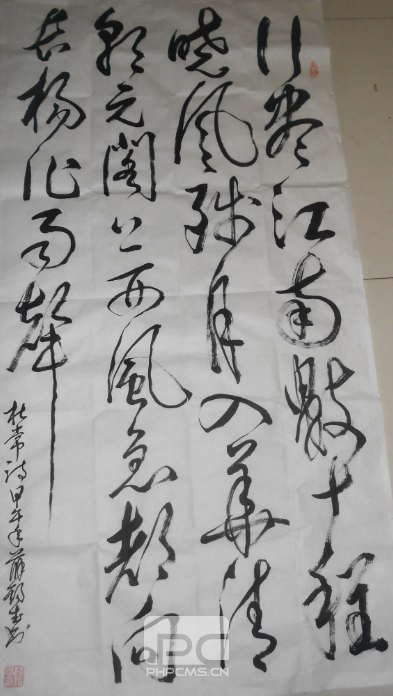 行盡江南數十程
曉風殘月入華清
朝元閣上西風急都向
長楊作雨聲
杜常詩甲午年
PHPCMS.CN